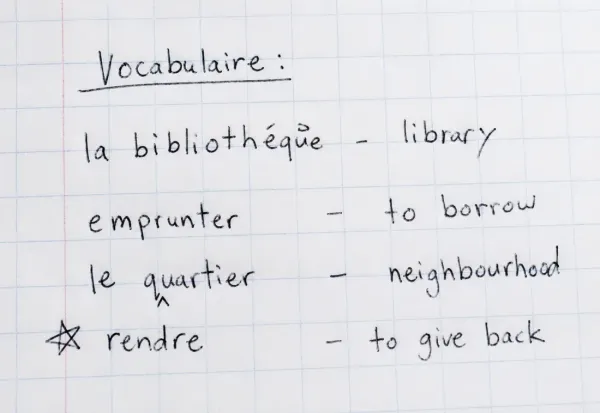 Vocabulaire :
la bibliothéque - library
emprunter - to borrow
le quartier - neighbourhood
☆ rendre - to give back